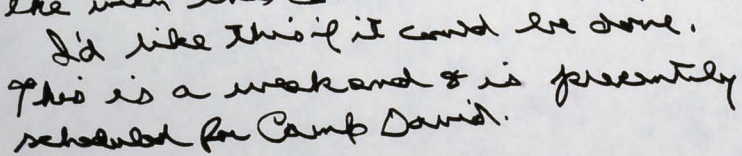 I'd like this if it could be done.
This is a weekend & is presently
scheduled for Camp David.